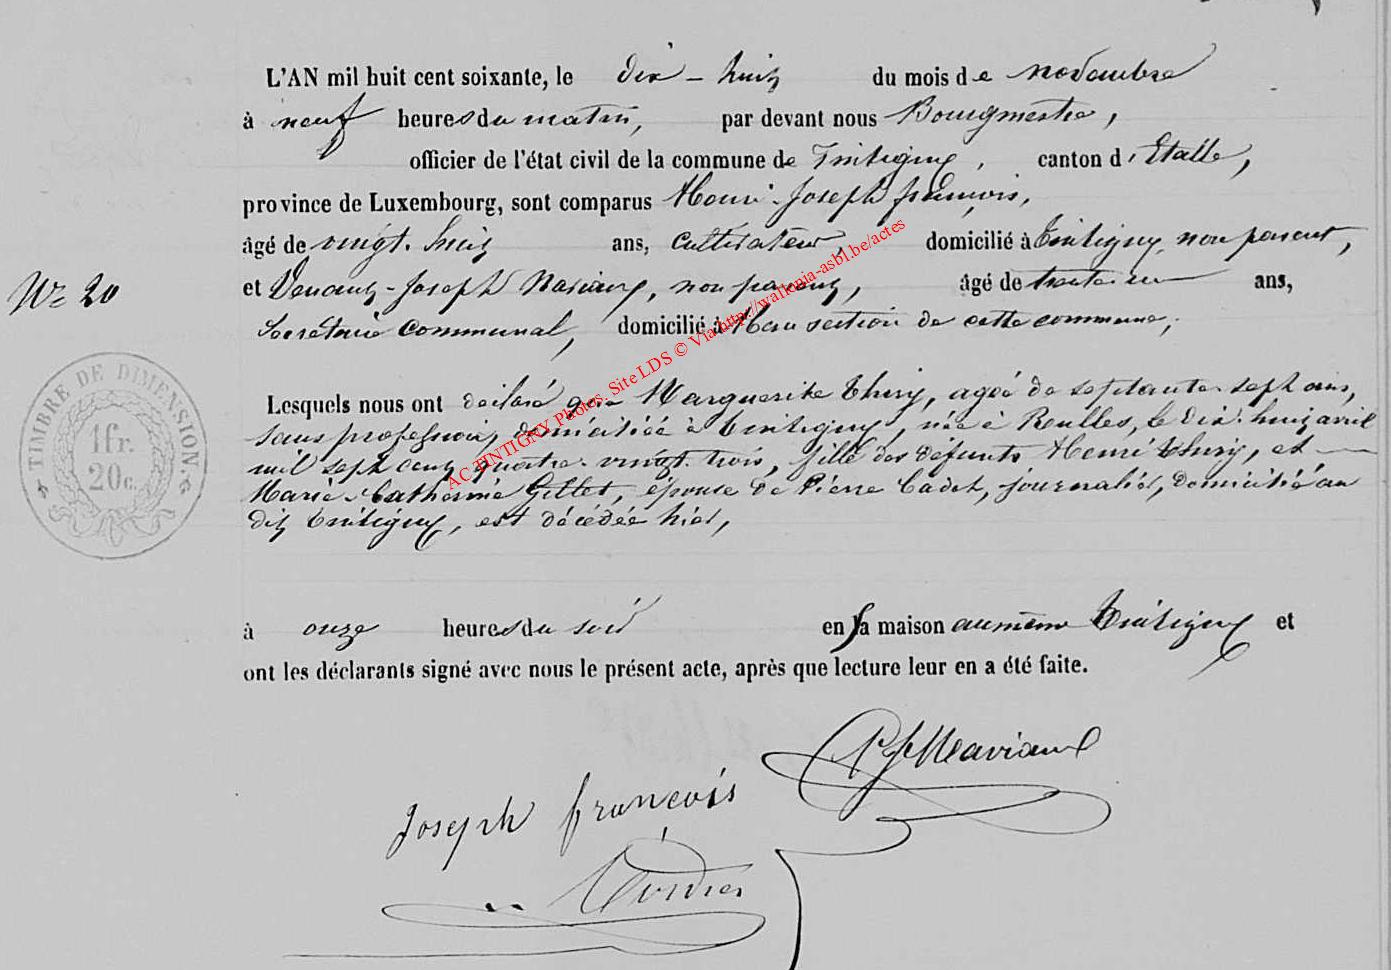 L'AN mil huit cent soixante, le dix-huit du mois de novembre
à neuf heures du matin, par devant nous Bourgmestre,
officier de l'état civil de la commune de Tintigny, canton d'Etalle,
province de Luxembourg, sont comparus Henri-Joseph françois,
âgé de vingt-huit ans, Cultivateur, domicilié à Tintigny, non parent,
et Joseph non parent, âgé de trente un ans,
N° 20
Secrétaire communal, domicilié à section de cette commune,
Lesquels nous ont déclaré que Marguerite Thiry, agée de septante-sept ans,
sans profession, domiciliée à Tintigny, née à Rulles, le dix-huit avril
mil sept cent quatre-vingt-trois, fille des défunts Henri Thiry, et
Marie-Catherine Gillet, épouse de Pierre Cadet, journalier, domicilié au
dit Tintigny, est décédée hier,
TIMBRE DE DIMENSION.
1fr.
20c.
AC TINTIGNY Photos. Site LDS © Via http://wallonia-asbl.be/actes
à onze heures du soir en sa maison au même Tintigny et
ont les déclarants signé avec nous le présent acte, après que lecture leur en a été faite.
Joseph françois